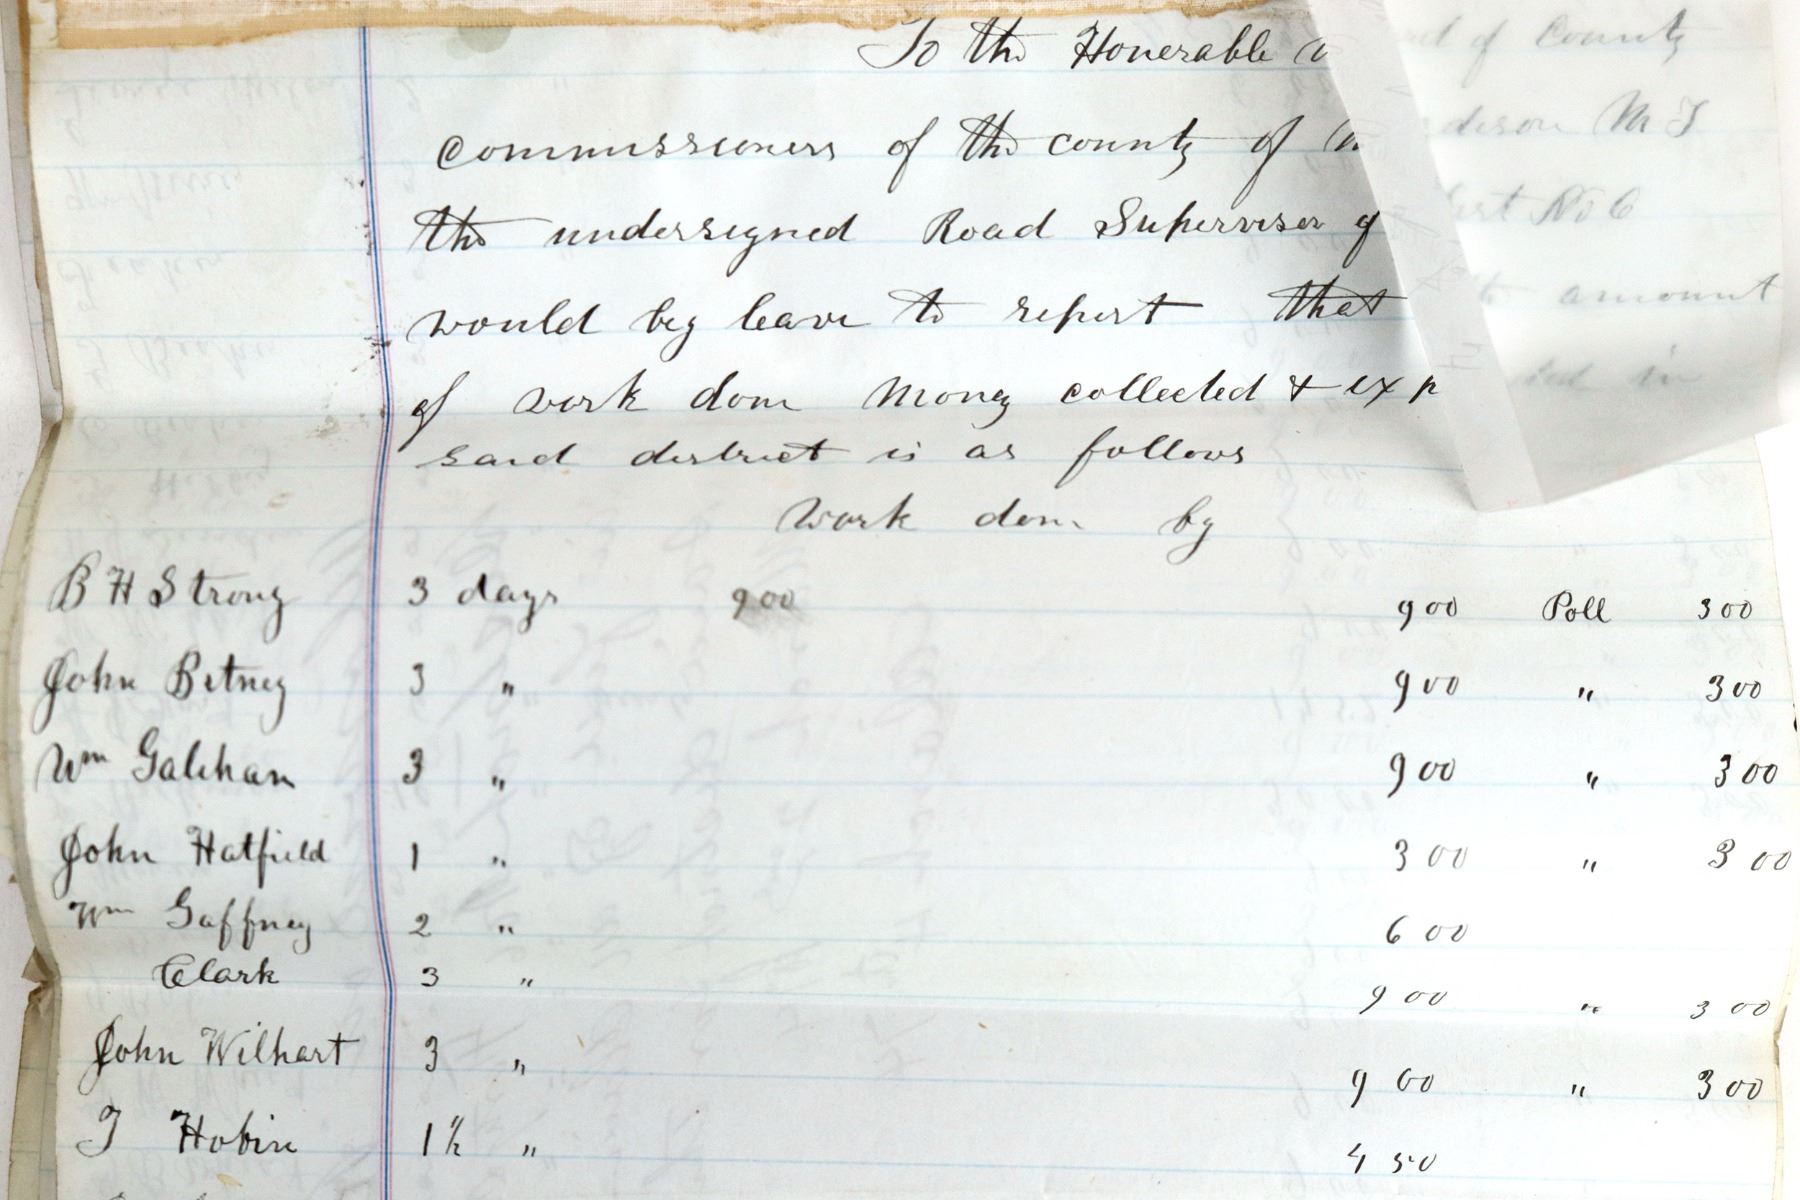 To the Honerable
commissioners of the county of
the undersigned Road Superviser of
would beg leave to report that
of work done Money collected & exp
said district is as follows
work done by
B H Strong 3 days 9 00 9 00 Poll 3 00
John Betney 3 " 9 00 " 3 00
Wm Galehan 3 " 9 00 " 3 00
John Hatfield 1 " 3 00 " 3 00
Wm Gaffney 2 " 6 00
Clark 3 " 9 00 " 3 00
John Wilhart 3 " 9 00 " 3 00
T Hobin 1½ " 4 50
of County
M T
No 6
amount
in